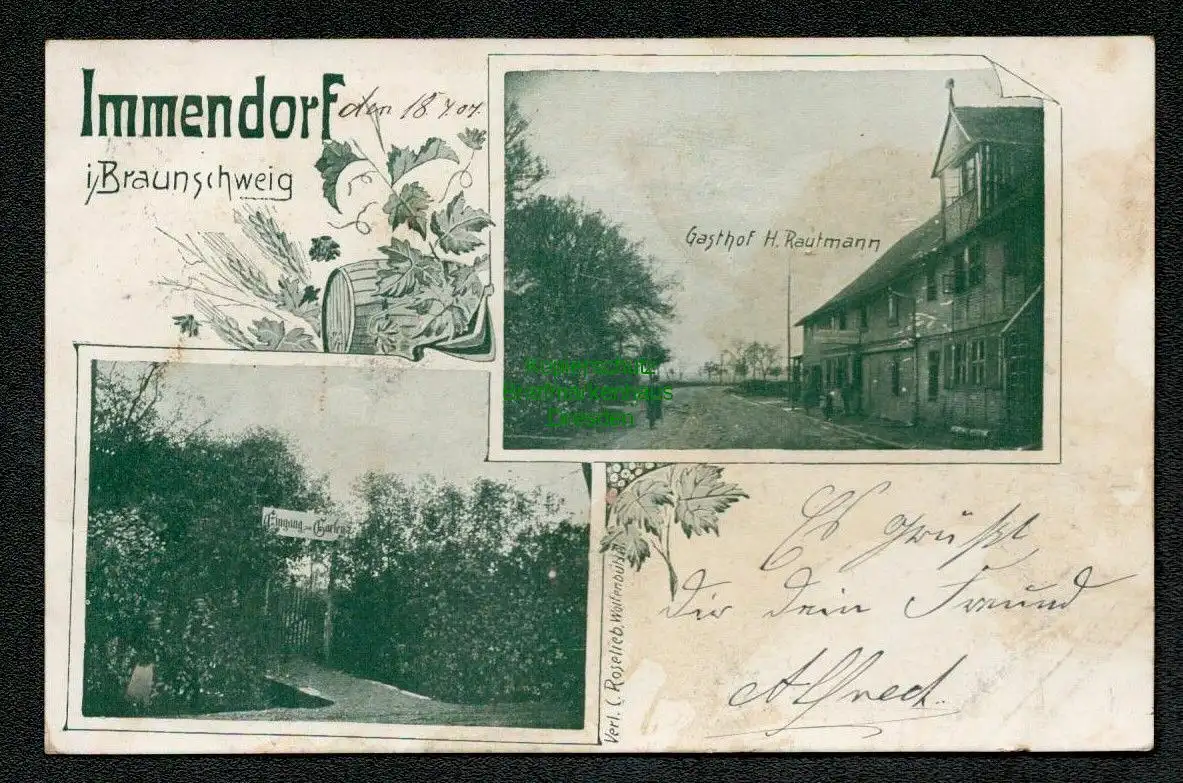 Immendorf den 18 4. 07.
i/Braunschweig
Gasthof H. Rautmann
Briefmarkenhaus
Dresden
Eingang zum Garten
Verl. C. Roselieb, Wolfenbüttel
Es grüßt
Dir dein Freund
Alfred.